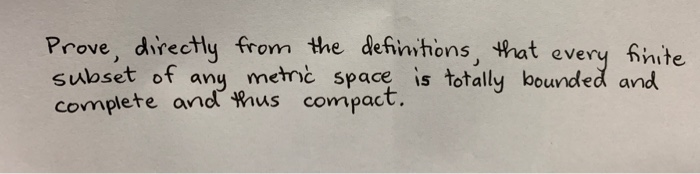 Prove, directly from the definitions, that every finite
subset of any metric space is totally bounded and
complete and thus compact.